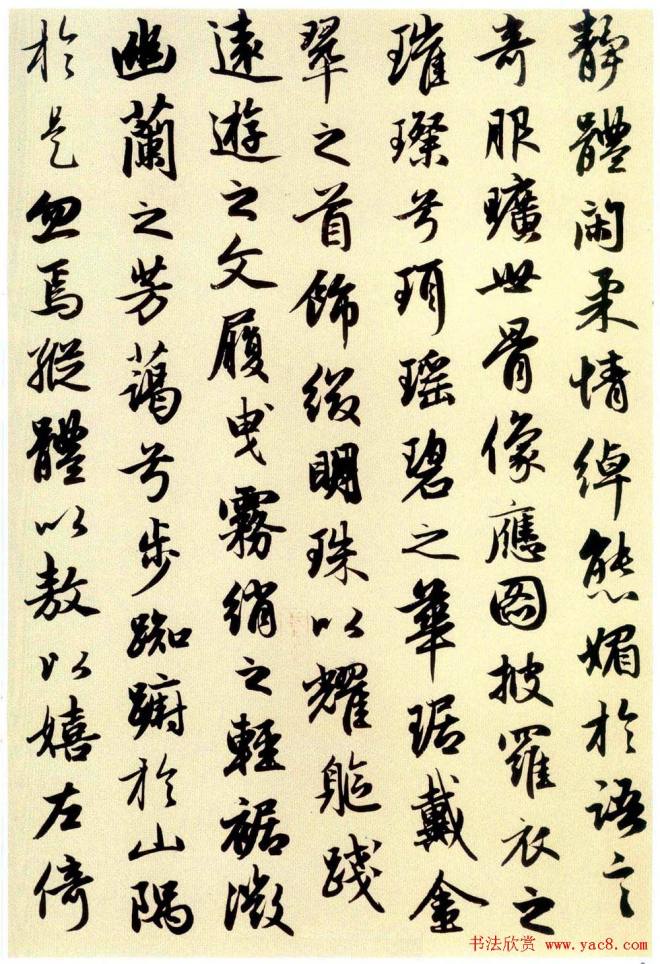 靜體閑柔情綽態媚於語言
奇服曠世骨像應圖披羅衣之
璀璨兮珥瑶碧之華琚戴金
翠之首飾綴明珠以耀軀踐
遠遊之文履曳霧綃之輕裾微
幽蘭之芳藹兮步踟躕於山隅
於是忽焉縱體以敖以嬉左倚
书法欣赏 www.yac8.com